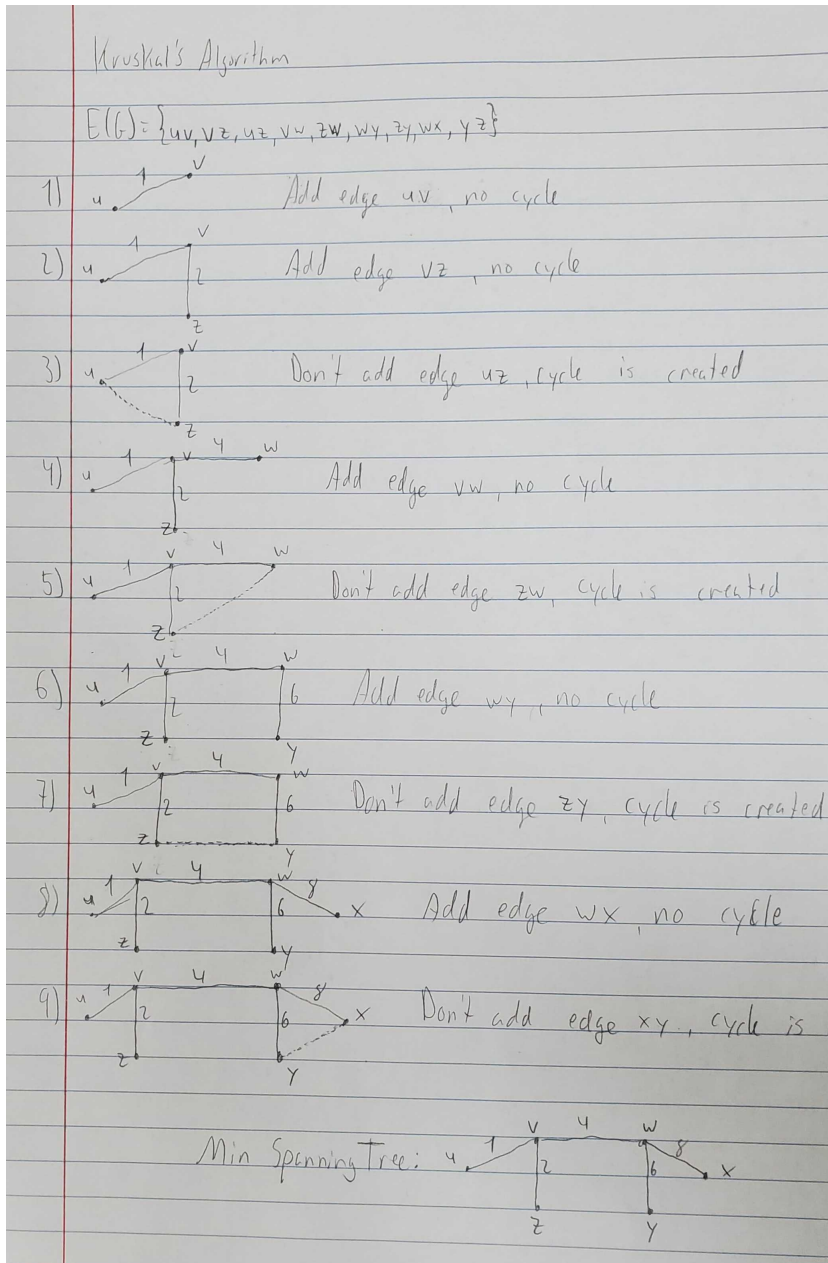 Kruskal's Algorithm
E(G)={uv, vz, uz, vw, zw, wy, zy, wx, yz}
1) u 1 v Add edge uv, no cycle
2) u 1 v 2 z Add edge vz, no cycle
3) u 1 v 2 z Don't add edge uz, cycle is created
4) u 1 v 4 w 2 z Add edge vw, no cycle
5) u 1 v 4 w 2 z Don't add edge zw, cycle is created
6) u 1 v 4 w 2 6 z y Add edge wy, no cycle
7) u 1 v 4 w 2 6 z y Don't add edge zy, cycle is created
8) u 1 v 4 w 8 x 2 6 z y Add edge wx, no cycle
9) u 1 v 4 w 8 x 2 6 z y Don't add edge xy, cycle is
Min Spanning Tree: u 1 v 4 w 8 x 2 6 z y